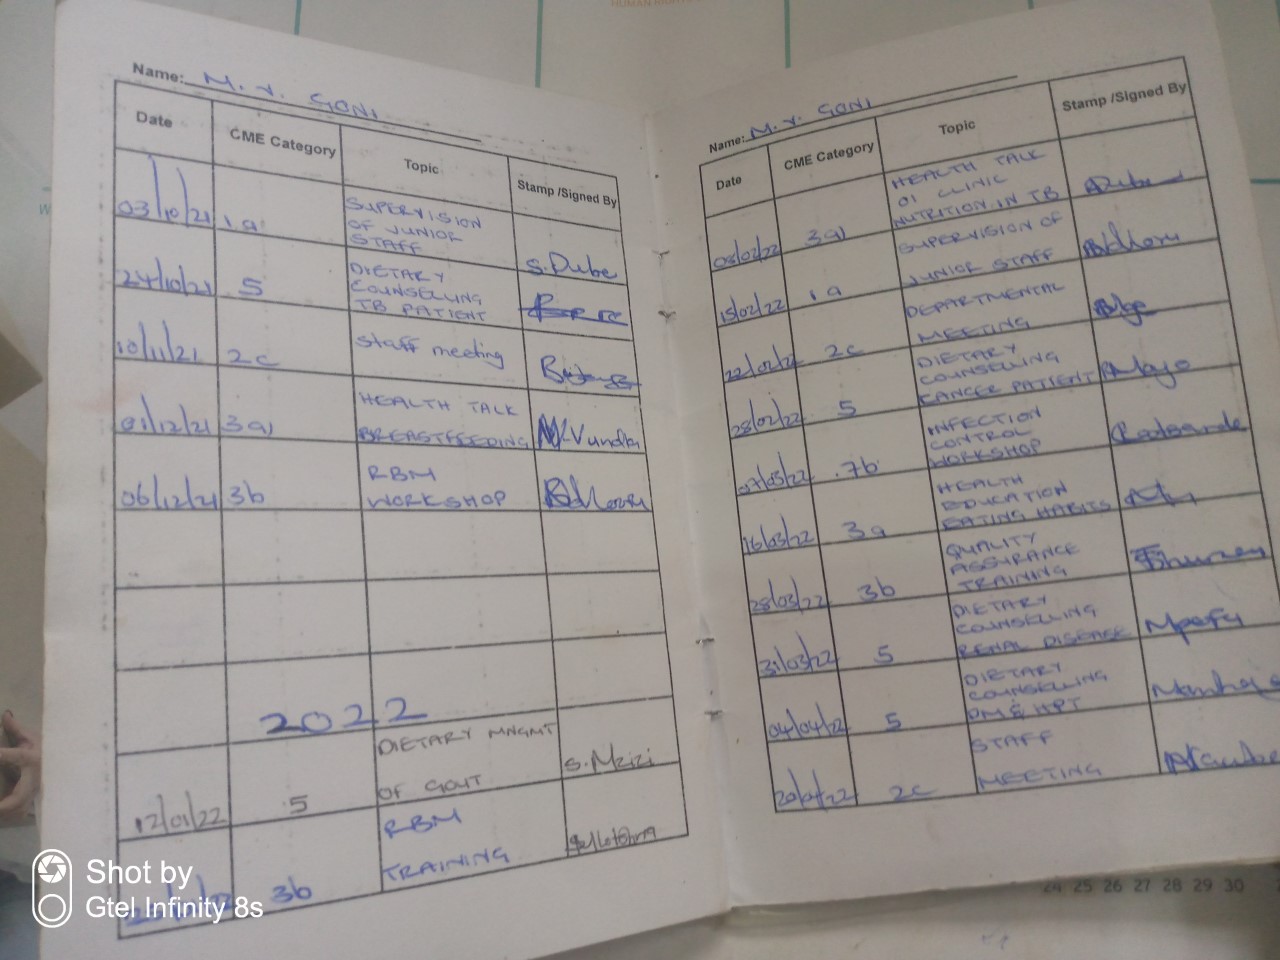 HUMAN RIGHTS
Name: M. V. GONI
Date CME Category Topic Stamp /Signed By
03/10/21 1a SUPERVISION OF JUNIOR STAFF S.Dube
24/10/21 5 DIETARY COUNSELLING TB PATIENT
10/11/21 2c Staff meeting
01/12/21 3a) HEALTH TALK BREASTFEEDING
06/12/21 3b RBM WORKSHOP
2022
12/01/22 5 DIETARY MNGMT OF GOUT S.Mzizi
3b RBM TRAINING
Name: M. V. GONI
Date CME Category Topic Stamp /Signed By
03/02/22 3a) HEALTH TALK OI CLINIC NUTRITION IN TB
15/02/22 1a SUPERVISION OF JUNIOR STAFF
22/02/22 2c DEPARTMENTAL MEETING
28/02/22 5 DIETARY COUNSELLING CANCER PATIENT
07/03/22 7b INFECTION CONTROL WORKSHOP
16/03/22 3a HEALTH EDUCATION EATING HABITS
28/03/22 3b QUALITY ASSURANCE TRAINING
31/03/22 5 DIETARY COUNSELLING RENAL DISEASE
04/04/22 5 DIETARY COUNSELLING DM & HPT
2c STAFF MEETING
24 25 26 27 28 29 30
Shot by
Gtel Infinity 8s